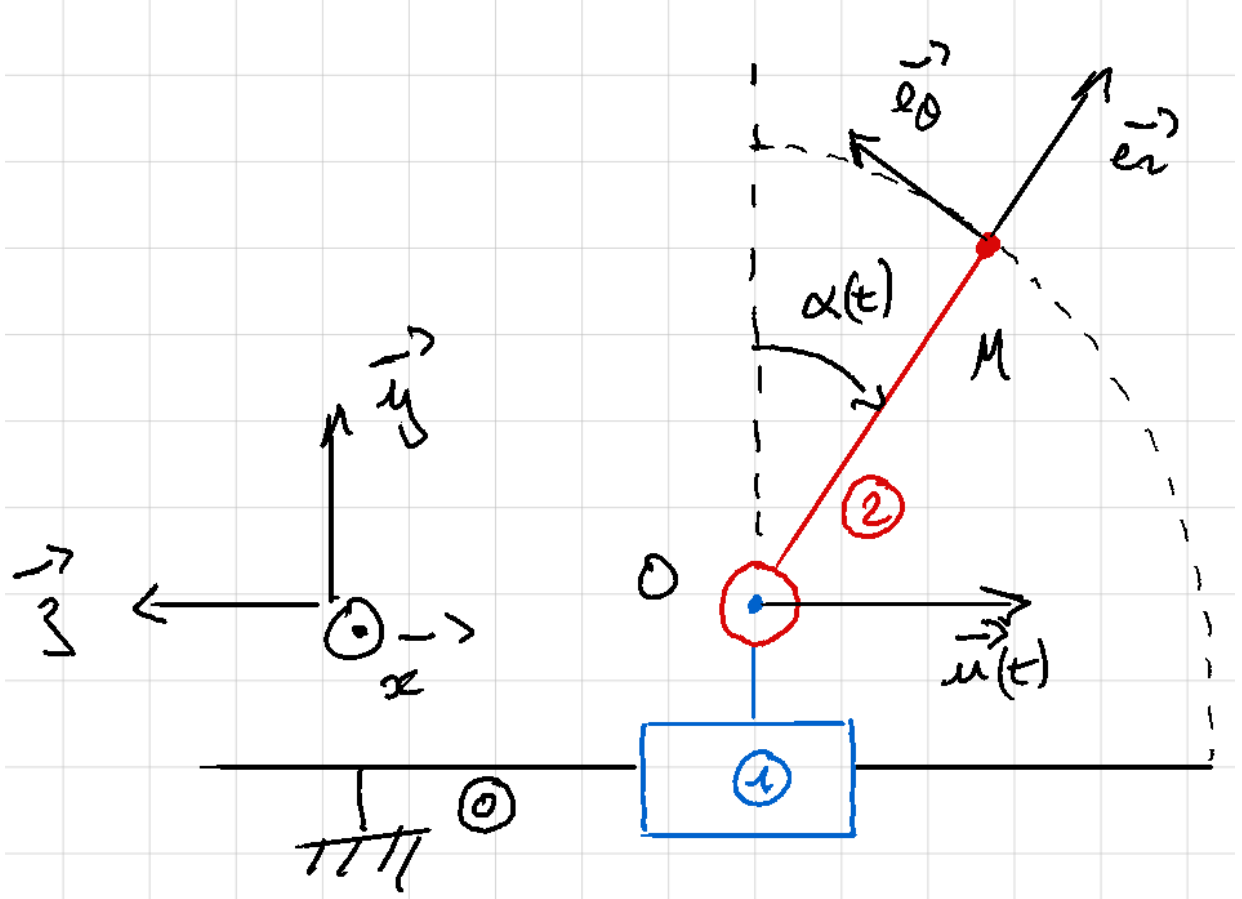 e⃗θ
e⃗r
α(t)
M
y⃗
②
O
z⃗
x⃗
u⃗(t)
①
⓪